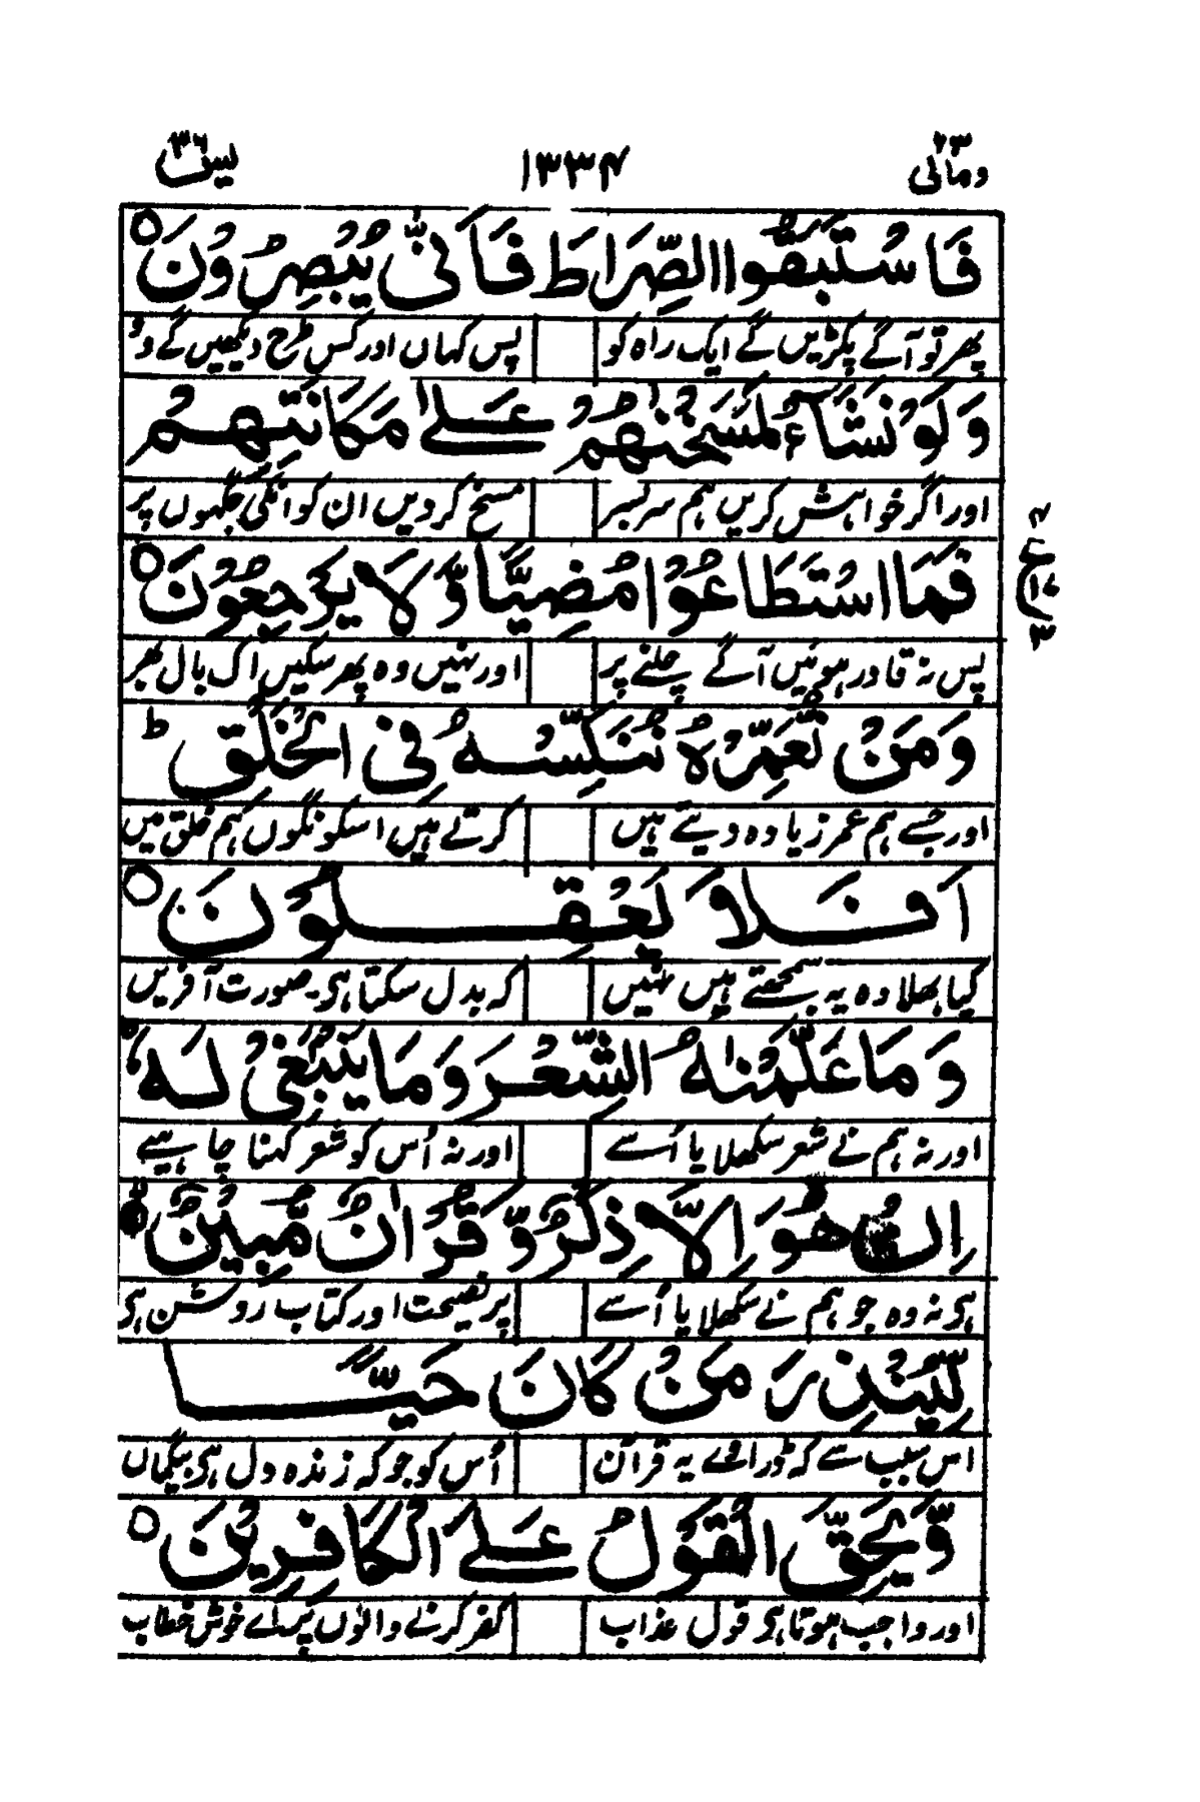 ومالی ۲۳ ۱۳۳۴ یٰسٓ ۳۶
فَاسْتَبَقُوا الصِّرَاطَ فَاَنّٰی یُبْصِرُوْنَ ○
پھر تو آگے پکڑیں گے ایک راہ کو پس کہاں اور کس طرح دیکھیں گے وُ
وَلَوْ نَشَآءُ لَمَسَخْنٰهُمْ عَلٰی مَكَانَتِهِمْ
اور اگر خواہش کریں ہم سر بسر مسخ کردیں ان کو انکی جگہوں پر
فَمَا اسْتَطَاعُوْا مُضِیًّا وَّلَا یَرْجِعُوْنَ ○
پس نہ قادر ہوئیں آگے چلنے پر اور نہیں وہ پھر سکیں اک بال بھر
ع ۳
وَمَنْ نُّعَمِّرْهُ نُنَكِّسْهُ فِی الْخَلْقِ ط
اور جسے ہم عمر زیادہ دیتے ہیں کرتے ہیں اسکو نگوں ہم خلق میں
اَفَلَا یَعْقِلُوْنَ ○
کیا بھلا وہ یہ سمجھتے ہیں نہیں کہ بدل سکتا ہی صورت آفریں
وَمَا عَلَّمْنٰهُ الشِّعْرَ وَمَا یَنْبَغِیْ لَهٗ
اور نہ ہم نے شعر سکھلایا اُسے اور نہ اُس کو شعر کہنا چاہیے
اِنْ هُوَ اِلَّا ذِكْرٌ وَّقُرْاٰنٌ مُّبِیْنٌ
ہی نہ وہ جو ہم نے سکھلایا اُسے پر نصیحت اور کتاب روشن ہی
لِّیُنْذِرَ مَنْ كَانَ حَیًّا
اس سبب سے کہ ڈراوے یہ قرآن اُس کو جو کہ زندہ دل ہی بیگماں
وَّیَحِقَّ الْقَوْلُ عَلَی الْكَافِرِیْنَ ○
اور واجب ہوتا ہی قول عذاب کفر کرنے والوں پر اے خوش خطاب